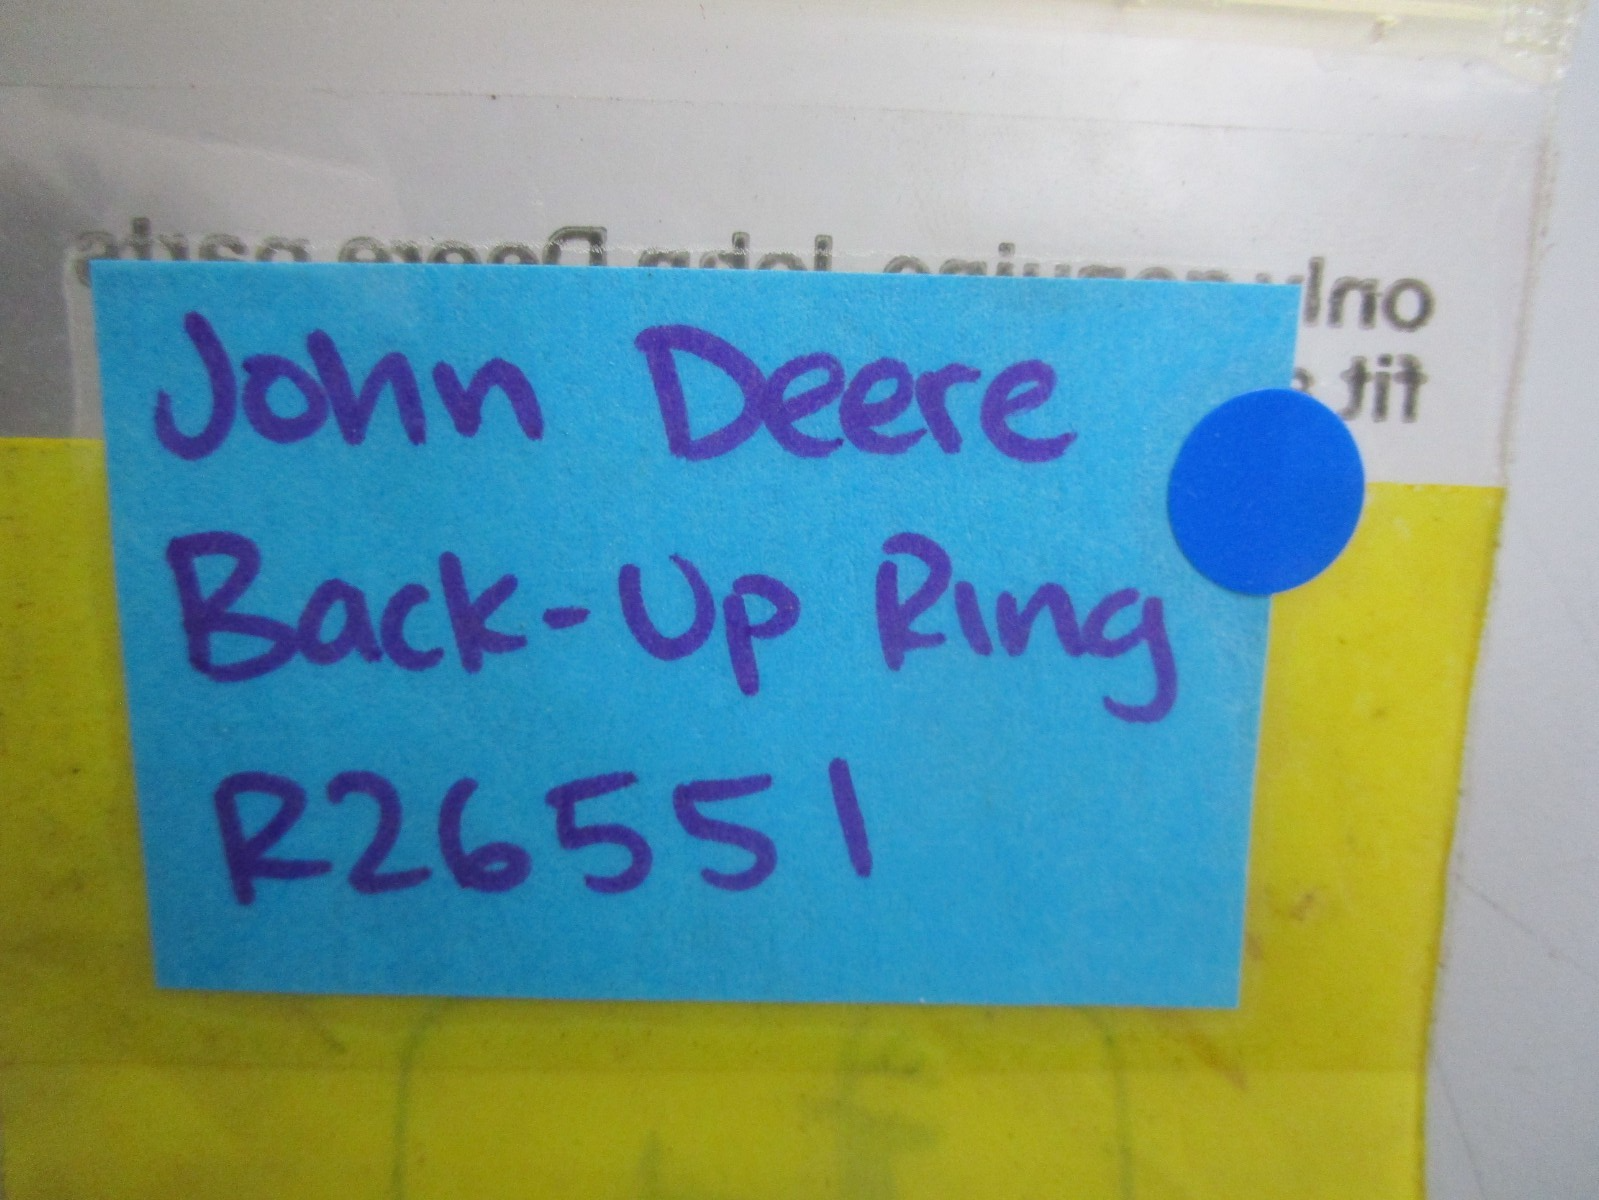 only genuine John Deere parts
fit
John Deere
Back-Up Ring
R26551